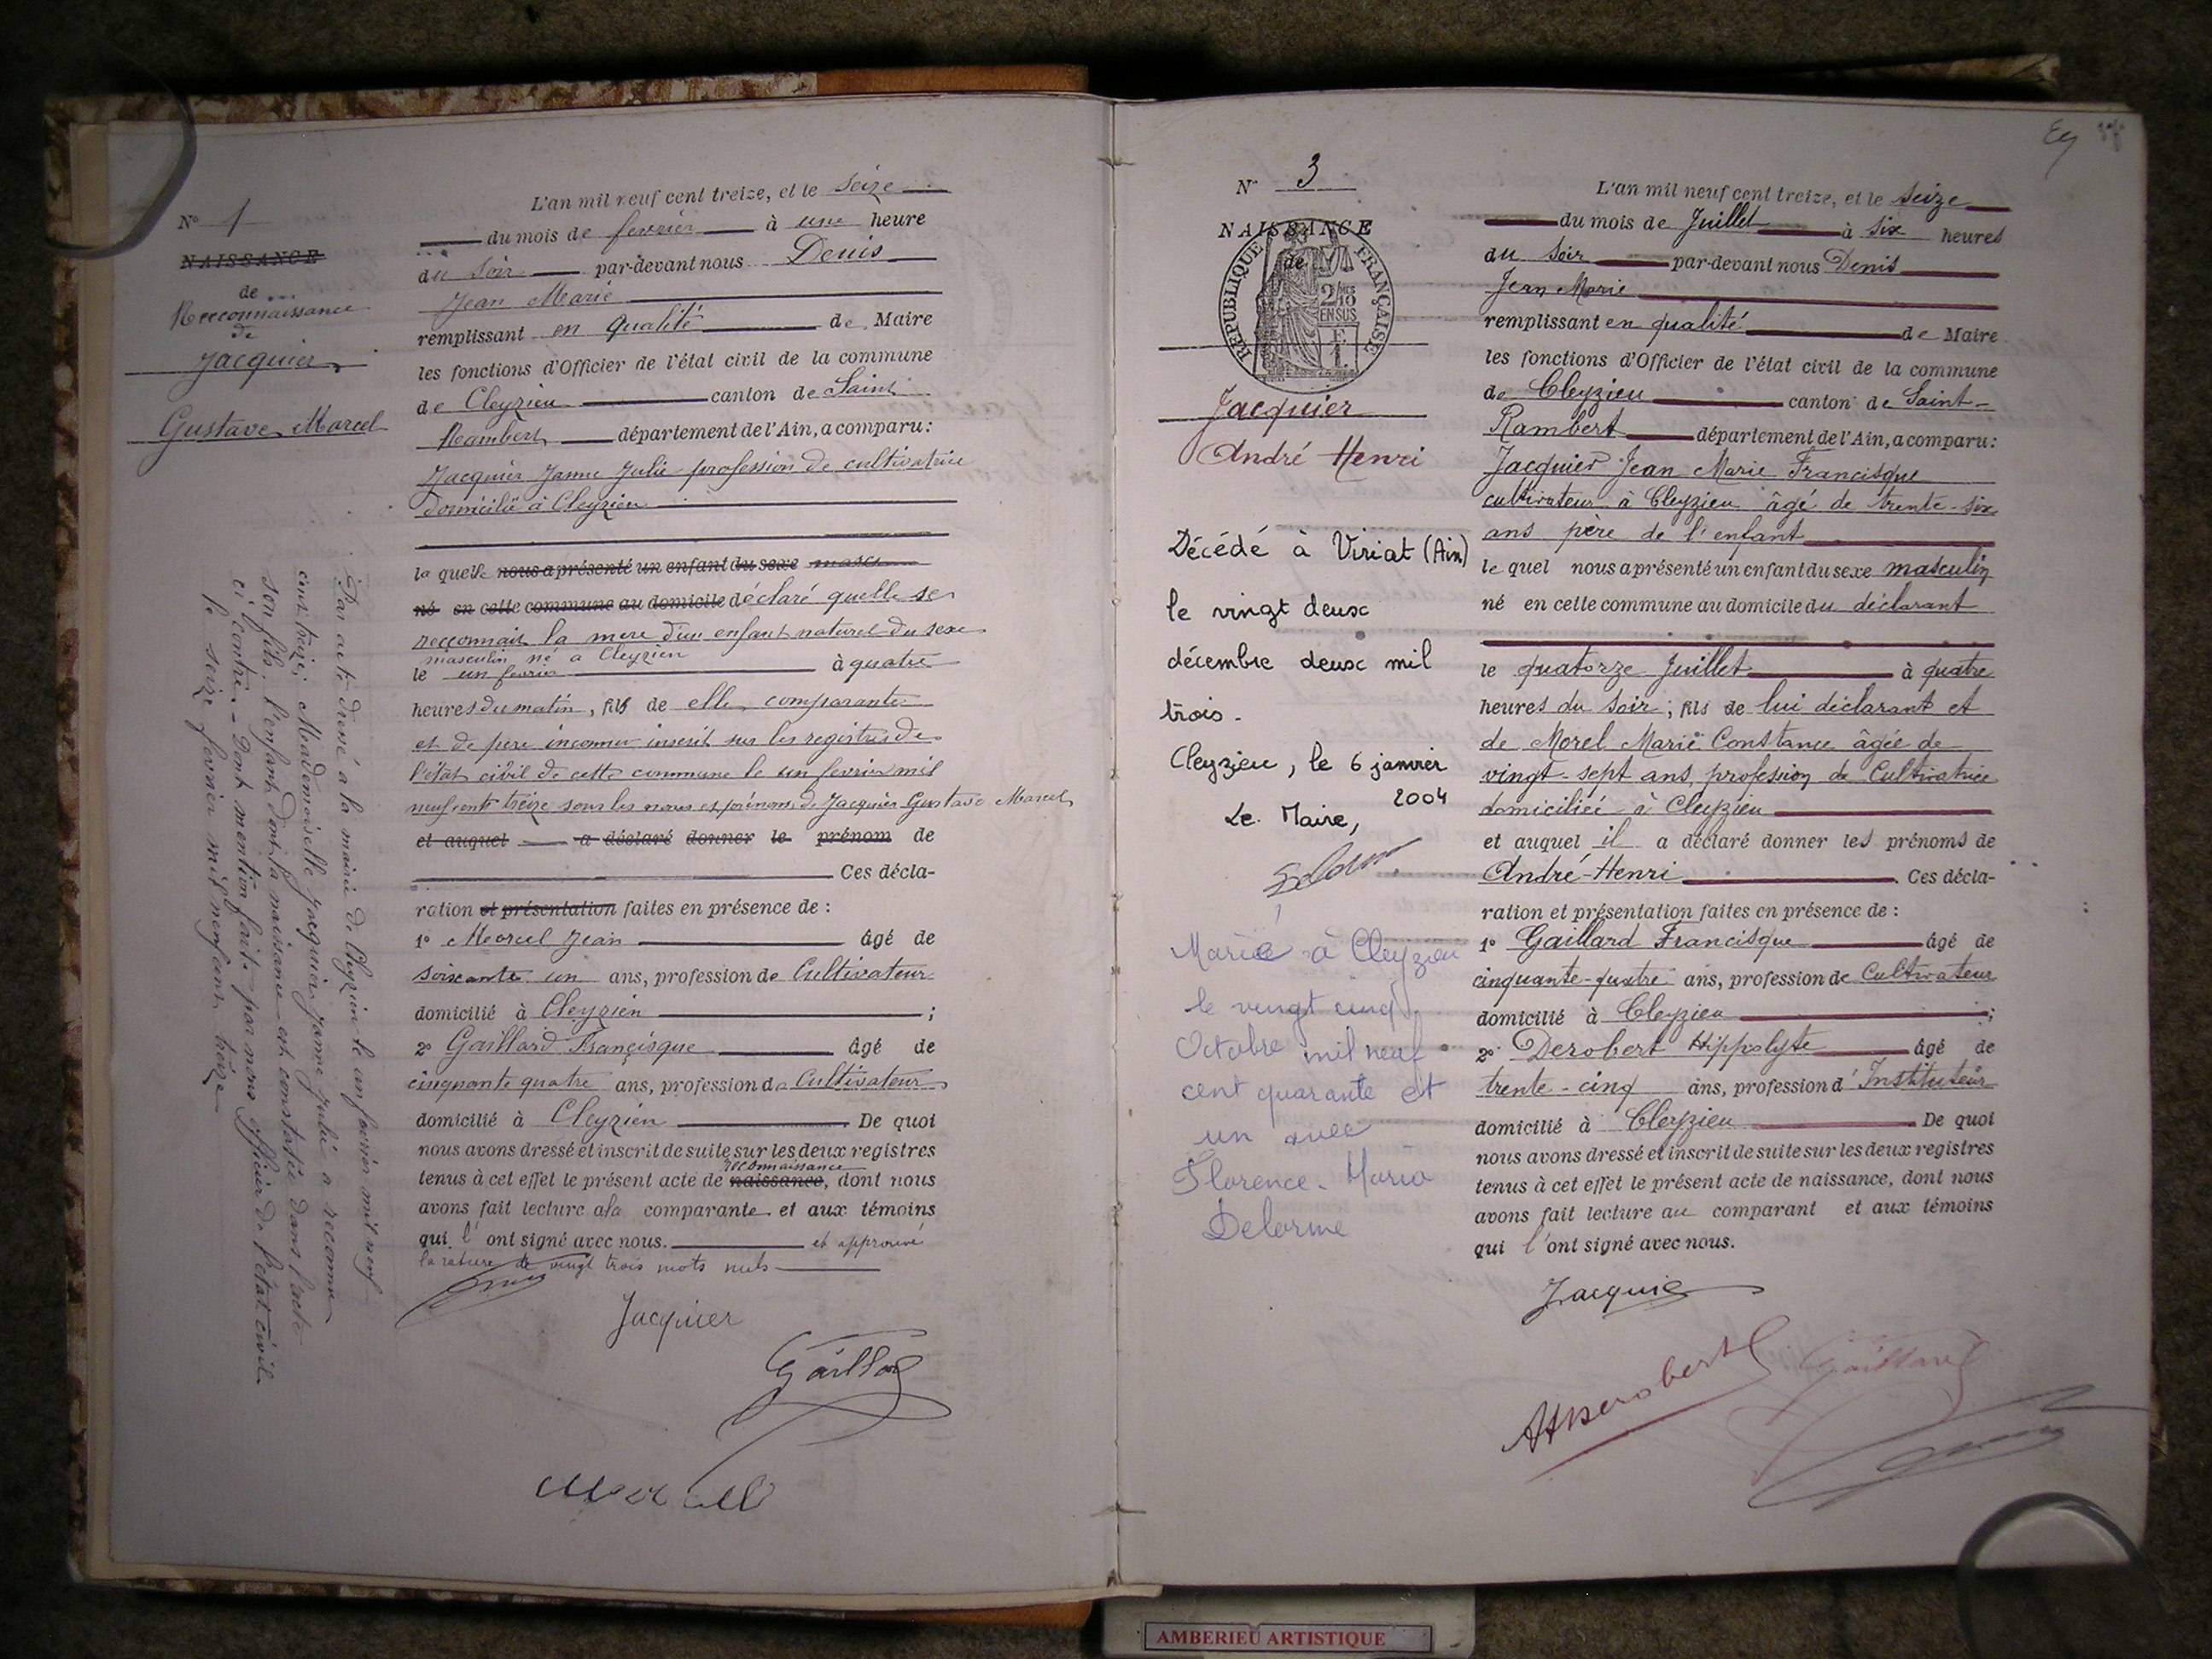 N° 1
NAISSANCE
de
Reconnaissance
de
Jacquier
Gustave Marcel
L'an mil neuf cent treize, et le seize
du mois de fevrier à une heure
du soir par-devant nous Denis
Jean Marie
remplissant en qualité de Maire
les fonctions d'Officier de l'état civil de la commune
de Cleyzieu canton de Saint
Rambert département de l'Ain, a comparu :
Jacquier Janne Julie profession de cultivatrice
domicilié à Cleyzieu
la quelle nous a présenté un enfant du sexe masc
né en cette commune au domicile déclaré quelle se
reconnait la mere d'un enfant naturel du sexe
masculin né a Cleyzieu
le un fevrier à quatre
heures du matin, fils de elle comparante
et de pere inconnu inscrit sur les registres de
l'état civil de cette commune le un fevrier mil
neuf cent treize sous les noms et prénoms de Jacquier Gustave Marcel
et auquel a déclaré donner le prénom de
Ces décla-
ration et présentation faites en présence de :
1° Morel Jean âgé de
soixante un ans, profession de Cultivateur
domicilié à Cleyzieu ;
2° Gaillard Françisque âgé de
cinquante quatre ans, profession de Cultivateur
domicilié à Cleyzieu De quoi
nous avons dressé et inscrit de suite sur les deux registres
reconnaissance
tenus à cet effet le présent acte de naissance, dont nous
avons fait lecture a la comparante et aux témoins
qui l'ont signé avec nous. et approuvé
la rature de vingt trois mots nuls
Jacquier
Gaillard
Par acte dressé a la mairie de Cleyzieu le un fevrier mil neuf
cent treize, Mademoiselle Jacquier Janne Julie a reconnu
son fils, l'enfant dont la naissance est constatée dans l'acte
ci contre. - Dont mention faite par nous officier de l'état civil
le seize fevrier mil neuf cent treize
N° 3
NAISSANCE
de
RÉPUBLIQUE FRANÇAISE
2/10
EN SUS
Jacquier
André Henri
Décédé à Viriat (Ain)
le vingt deux
décembre deux mil
trois.
Cleyzieu, le 6 janvier
2004
Le Maire,
Marié à Cleyzieu
le vingt cinq
Octobre mil neuf
cent quarante et
un avec
Florence Maria
Delorme
L'an mil neuf cent treize, et le seize
du mois de Juillet à six heures
du soir par-devant nous Denis
Jean Marie
remplissant en qualité de Maire
les fonctions d'Officier de l'état civil de la commune
de Cleyzieu canton de Saint-
Rambert département de l'Ain, a comparu :
Jacquier Jean Marie Francisque
cultivateur à Cleyzieu âgé de trente-six
ans père de l'enfant
le quel nous a présenté un enfant du sexe masculin
né en cette commune au domicile du déclarant
le quatorze Juillet à quatre
heures du soir ; fils de lui déclarant et
de Morel Marie Constance âgée de
vingt-sept ans profession de Cultivatrice
domiciliée à Cleyzieu
et auquel il a déclaré donner les prénoms de
André-Henri . Ces décla-
ration et présentation faites en présence de :
1° Gaillard Francisque âgé de
cinquante-quatre ans, profession de Cultivateur
domicilié à Cleyzieu ;
2° Derobert Hippolyte âgé de
trente-cinq ans, profession d'Instituteur
domicilié à Cleyzieu De quoi
nous avons dressé et inscrit de suite sur les deux registres
tenus à cet effet le présent acte de naissance, dont nous
avons fait lecture au comparant et aux témoins
qui l'ont signé avec nous.
Jacquier
Derobert
Gaillard
AMBERIEU ARTISTIQUE